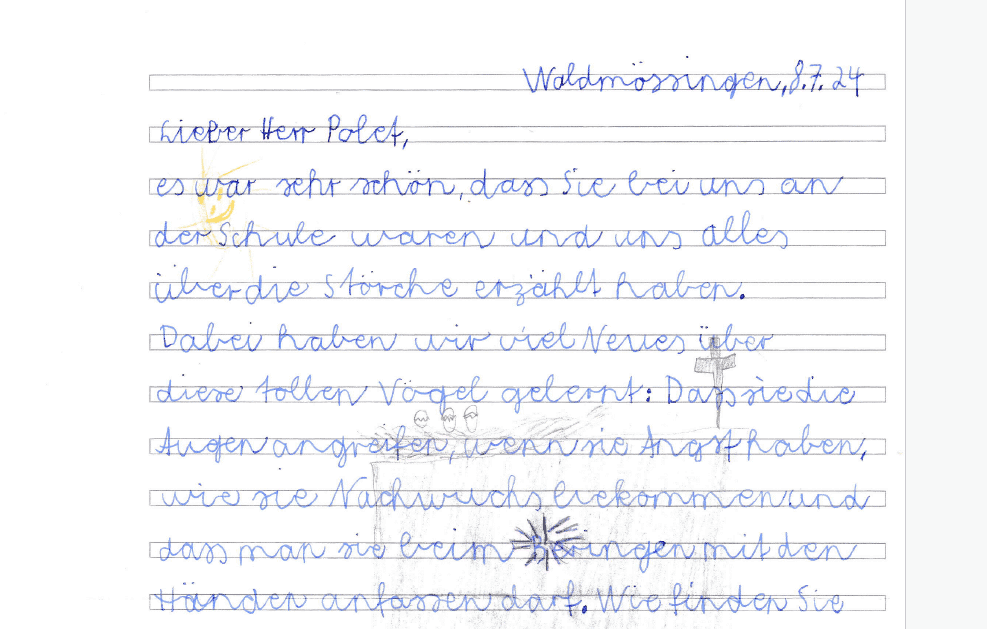 Waldmössingen, 8.7.24
Lieber Herr Polet,
es war sehr schön, dass Sie bei uns an
der Schule waren und uns alles
über die Störche erzählt haben.
Dabei haben wir viel Neues über
diese tollen Vögel gelernt: Dass sie die
Augen angreifen, wenn sie Angst haben,
wie sie Nachwuchs bekommen und
dass man sie beim Beringen mit den
Händen anfassen darf. Wie finden Sie